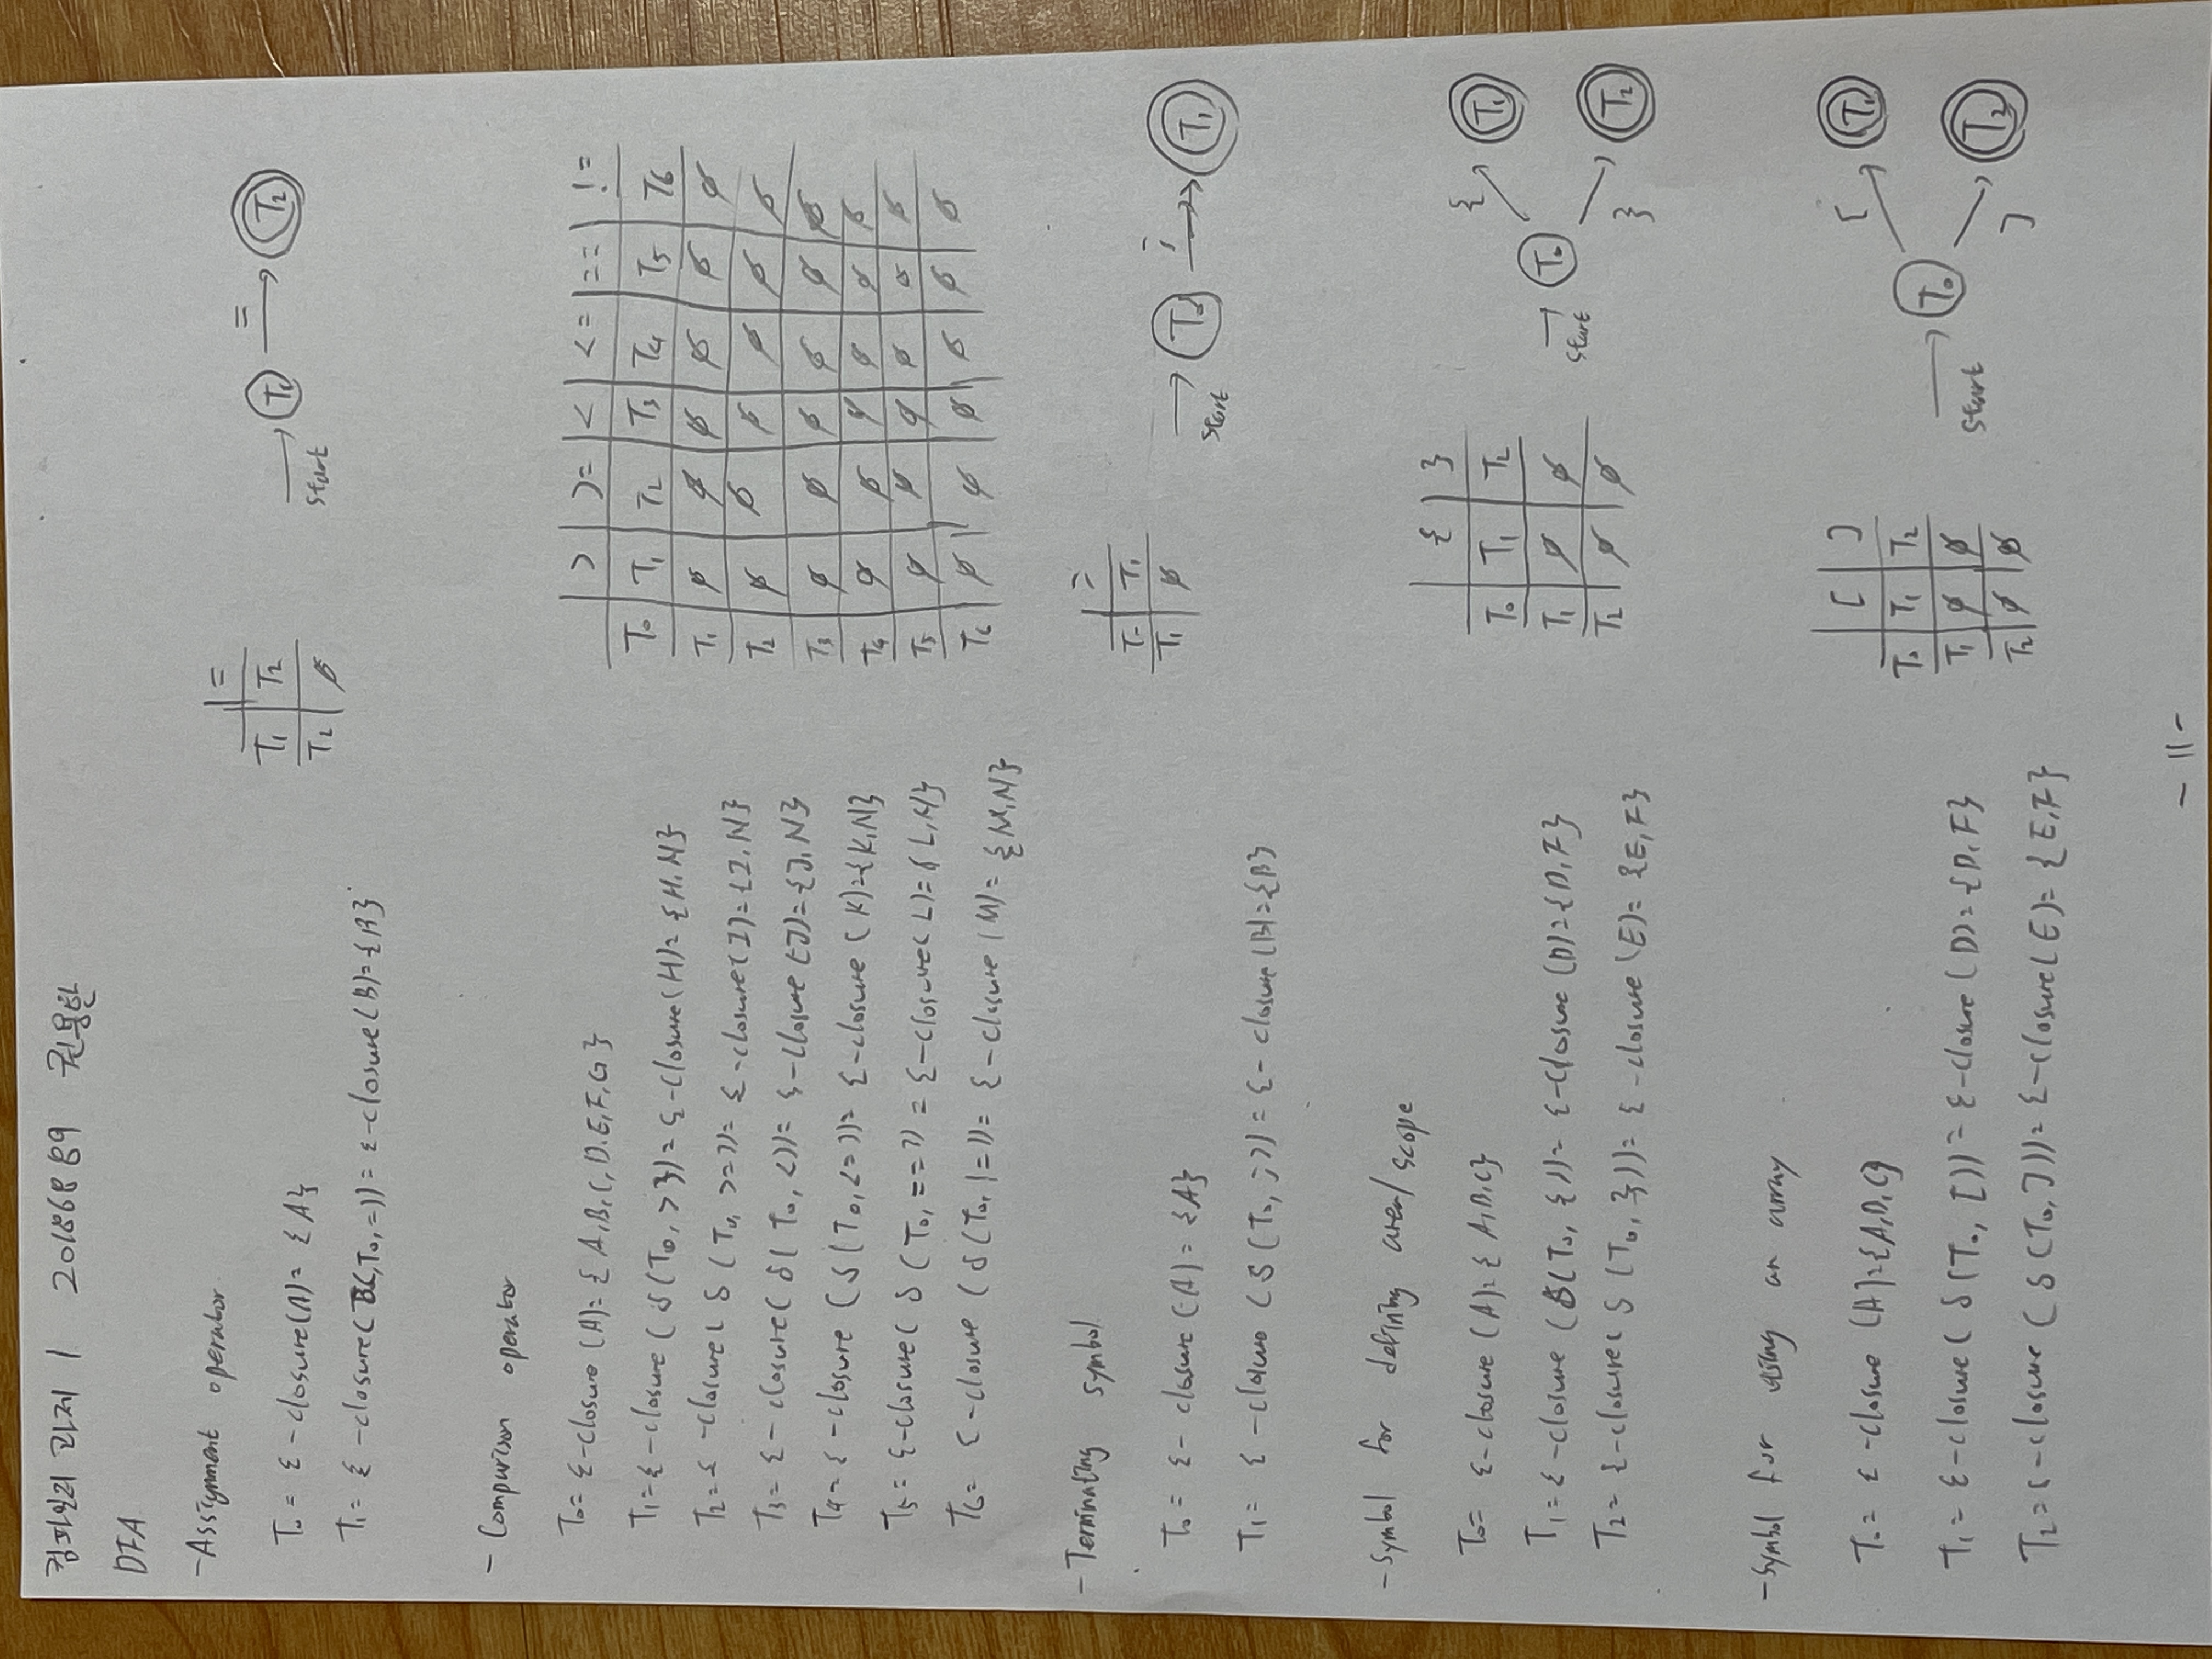 컴파일러 과제 1 20186889 권용한
DFA
-Assignment operator
T₀ = ε-closure(A) = {A}
T₁ = ε-closure( (T₀, =)) = ε-closure(B) = {B}
=
T₁ T₂
T₂ ∅
start T₁ = T₂
- Comparison operator
T₀ = ε-closure (A) = { A, B, C, D, E, F, G }
T₁ = ε-closure ( δ(T₀, > )) = ε-closure(H) = {H, N}
T₂ = ε-closure( δ (T₀, >= )) = ε-closure(I) = {I, N}
T₃ = ε-closure( δ( T₀, <)) = ε-closure (J) = {J, N}
T₄ = ε-closure (δ(T₀, <= )) = ε-closure (K) = {K, N}
T₅ = ε-closure( δ (T₀, == )) = ε-closure( L) = { L, N}
T₆ = ε-closure (δ(T₀, != )) = ε-closure (M) = {M, N}
> >= < <= == !=
T₀ T₁ T₂ T₃ T₄ T₅ T₆
T₁ ∅ ∅ ∅ ∅ ∅ ∅
T₂ ∅ ∅ ∅ ∅ ∅ ∅
T₃ ∅ ∅ ∅ ∅ ∅ ∅
T₄ ∅ ∅ ∅ ∅ ∅ ∅
T₅ ∅ ∅ ∅ ∅ ∅ ∅
T₆ ∅ ∅ ∅ ∅ ∅ ∅
- Terminating symbol
T₀ = ε-closure (A) = {A}
T₁ = ε-closure (δ (T₀, ;)) = ε-closure (B) = {B}
T₀ T₁
T₁ ∅
start T₀ ; T₁
- Symbol for defining area/scope
T₀ = ε-closure (A) = { A, B, C}
T₁ = ε-closure (δ(T₀, { )) = ε-closure (D) = {D, F}
T₂ = ε-closure( δ (T₀, })) = ε-closure (E) = {E, F}
{ }
T₀ T₁ T₂
T₁ ∅ ∅
T₂ ∅ ∅
start T₀ { T₁
} T₂
- Symbol for using an array
T₀ = ε-closure (A) = {A, B, C}
T₁ = ε-closure( δ(T₀, [)) = ε-closure (D) = {D, F}
T₂ = ε-closure (δ (T₀, ])) = ε-closure( E) = {E, F}
[ ]
T₀ T₁ T₂
T₁ ∅ ∅
T₂ ∅ ∅
start T₀ [ T₁
] T₂
- 11 -